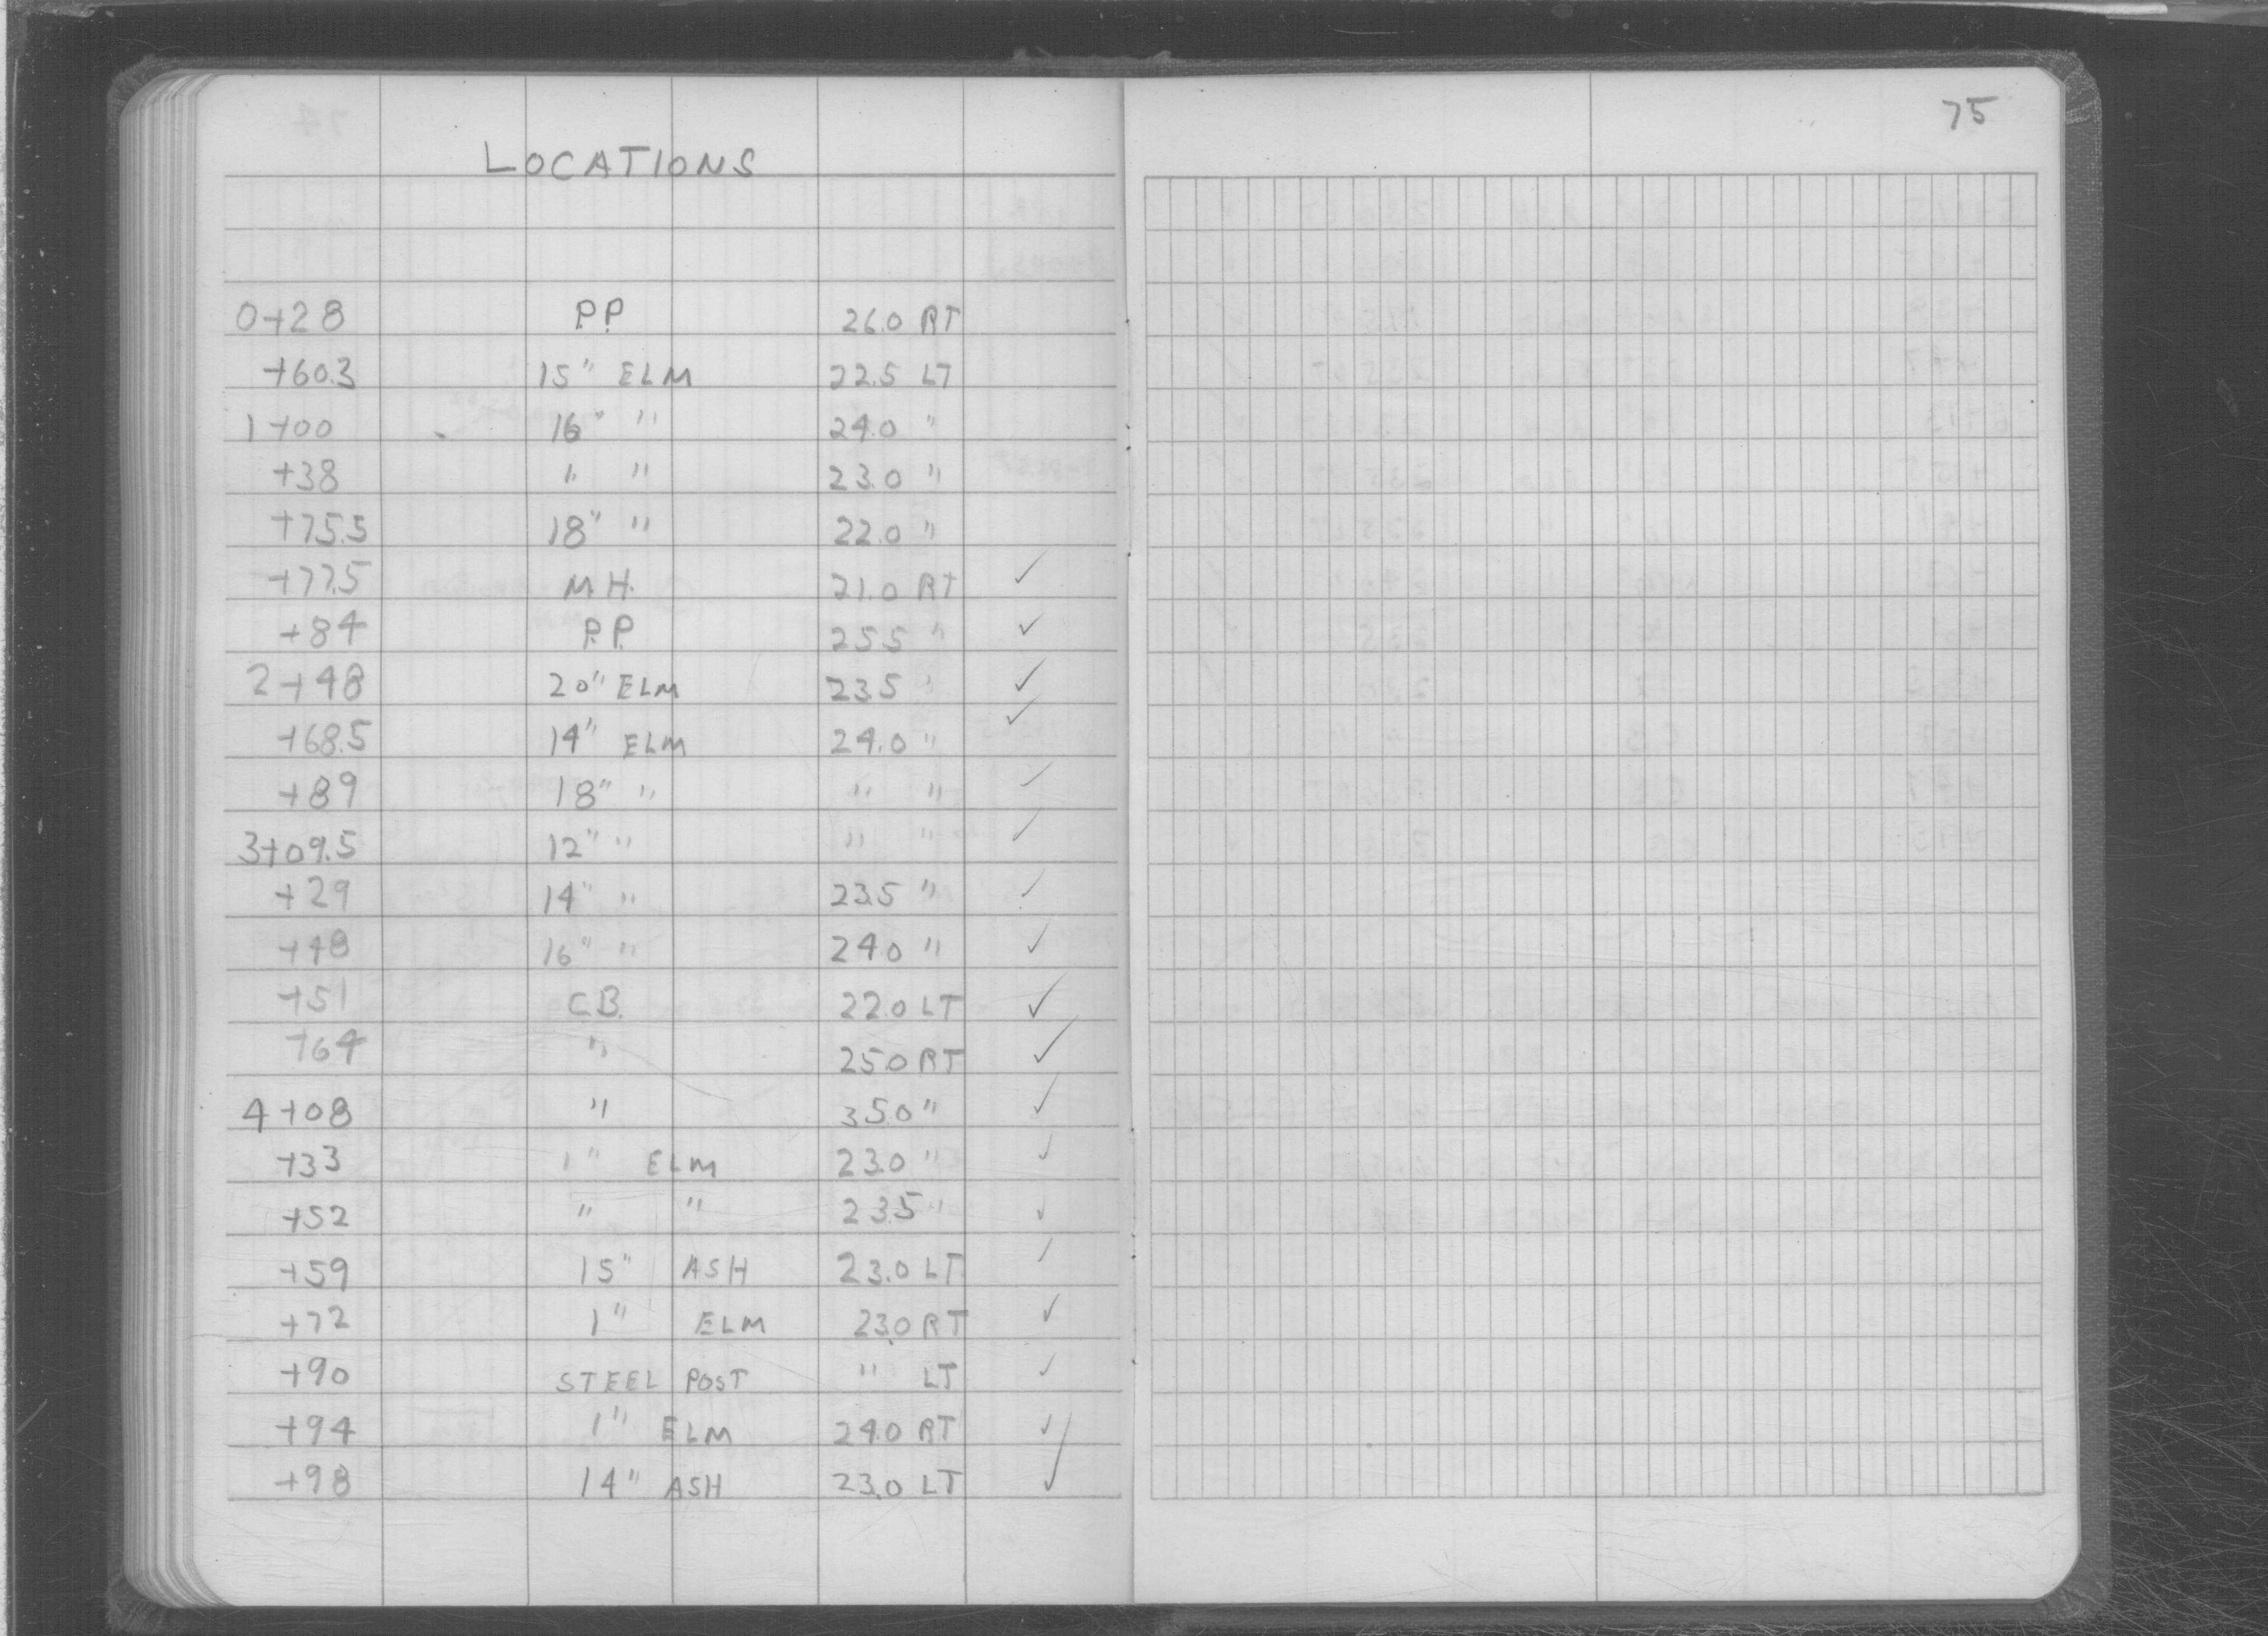 75
LOCATIONS
0+28 P.P. 26.0 RT
+60.3 15" ELM 22.5 LT
1+00 16" " 24.0 "
+38 " " 23.0 "
+75.5 18" " 22.0 "
+77.5 M.H. 21.0 RT ✓
+84 P.P. 25.5 " ✓
2+48 20" ELM 23.5 " ✓
+68.5 14" ELM 24.0 " ✓
+89 18" " " " ✓
3+09.5 12" " " " ✓
+29 14" " 23.5 " ✓
+48 16" " 24.0 " ✓
+51 C.B. 22.0 LT ✓
+64 " 25.0 RT ✓
4+08 " 35.0 " ✓
+33 1" ELM 23.0 " ✓
+52 " " 23.5 " ✓
+59 15" ASH 23.0 LT ✓
+72 1" ELM 23.0 RT ✓
+90 STEEL POST " LT ✓
+94 1" ELM 24.0 RT ✓
+98 14" ASH 23.0 LT ✓